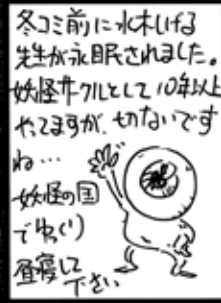 冬コミ前に水木しげる
先生が永眠されました。
妖怪サークルとして10年以上
やってますが、切ないです
ね…
妖怪の国
でゆっくり
昼寝して
下さい